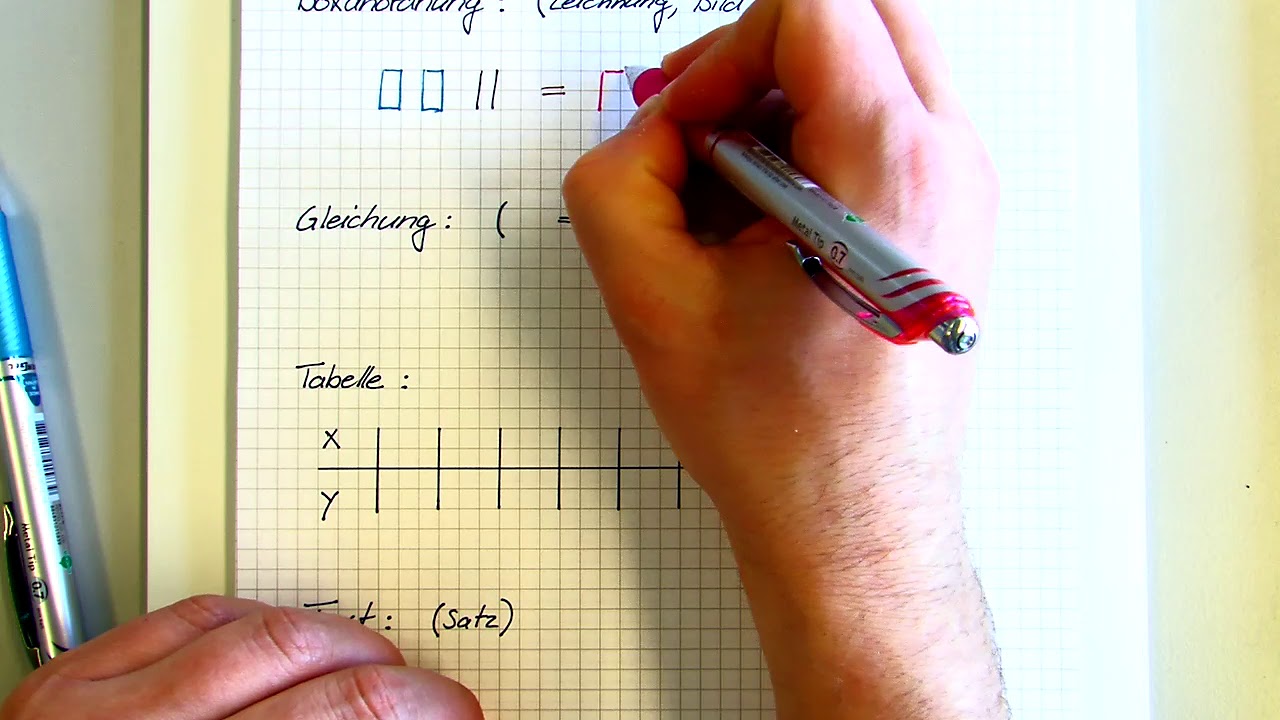 (Zeichnung, Bild
=
Gleichung: ( =
Tabelle:
x
y
(Satz)
Metal Tip 0.7
Metal Tip 0.7